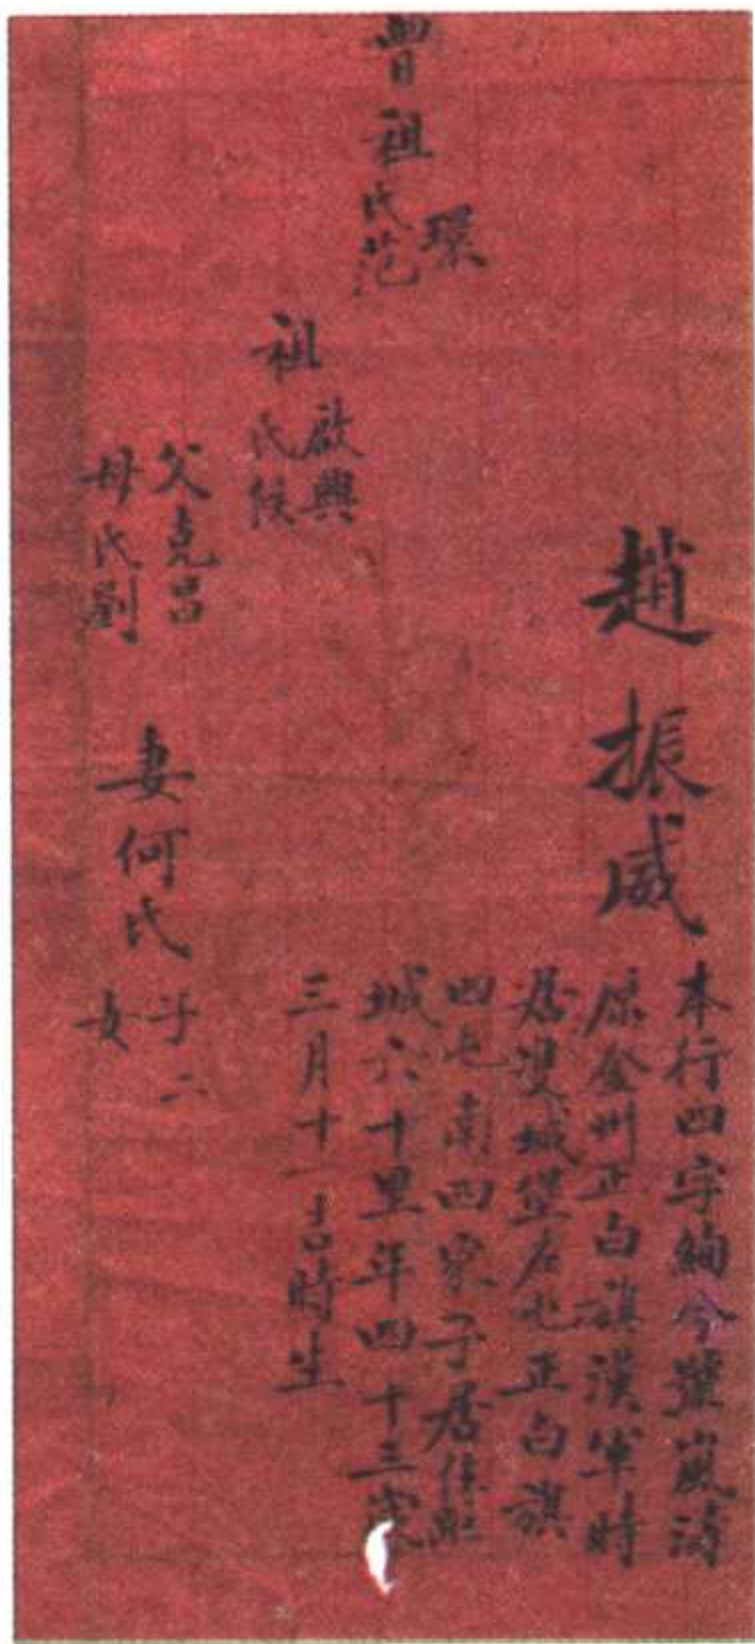 趙振威
本行四字絢今號嵐濤
原金州正白旗漢軍時
居雙城堡左屯正白旗
四屯南四家子居住距
城六十里年四十三歲
三月十一吉時生
曾祖環
氏范
祖啟興
氏侯
父克昌
母氏劉
妻何氏
子二
女